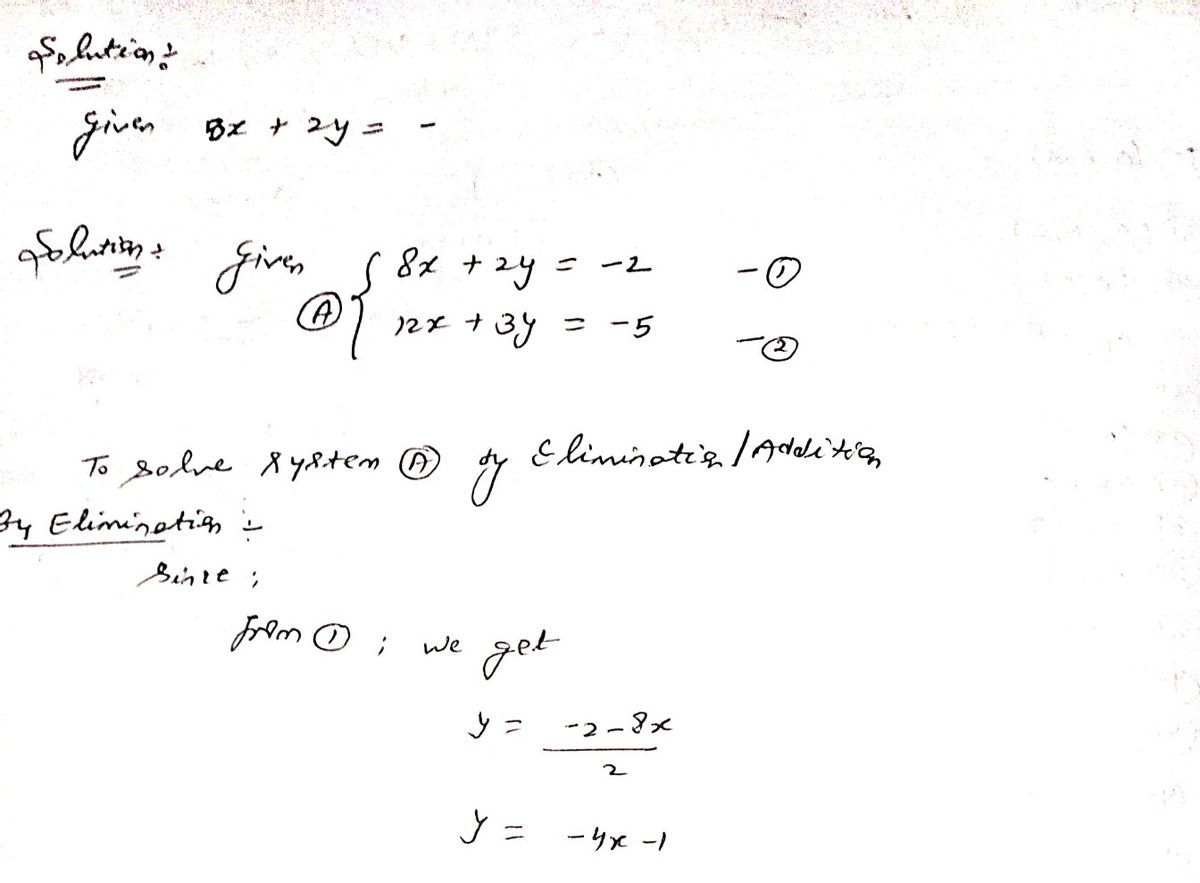 Solution:
Given 8x + 2y = -
Solution: Given { 8x + 2y = -2 - ①
Ⓐ 12x + 3y = -5 - ②
To solve system Ⓐ by Elimination/Addition
By Elimination :-
Since ;
from ① ; we get
y = -2-8x
2
y = -4x -1